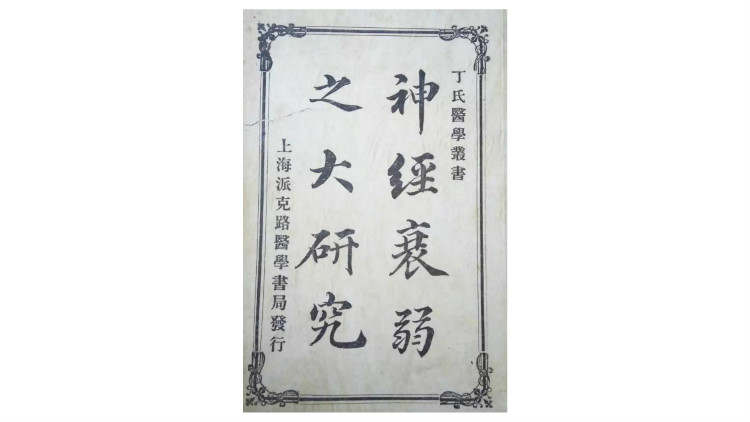 丁氏醫學叢書
神經衰弱
之大研究
上海派克路醫學書局發行